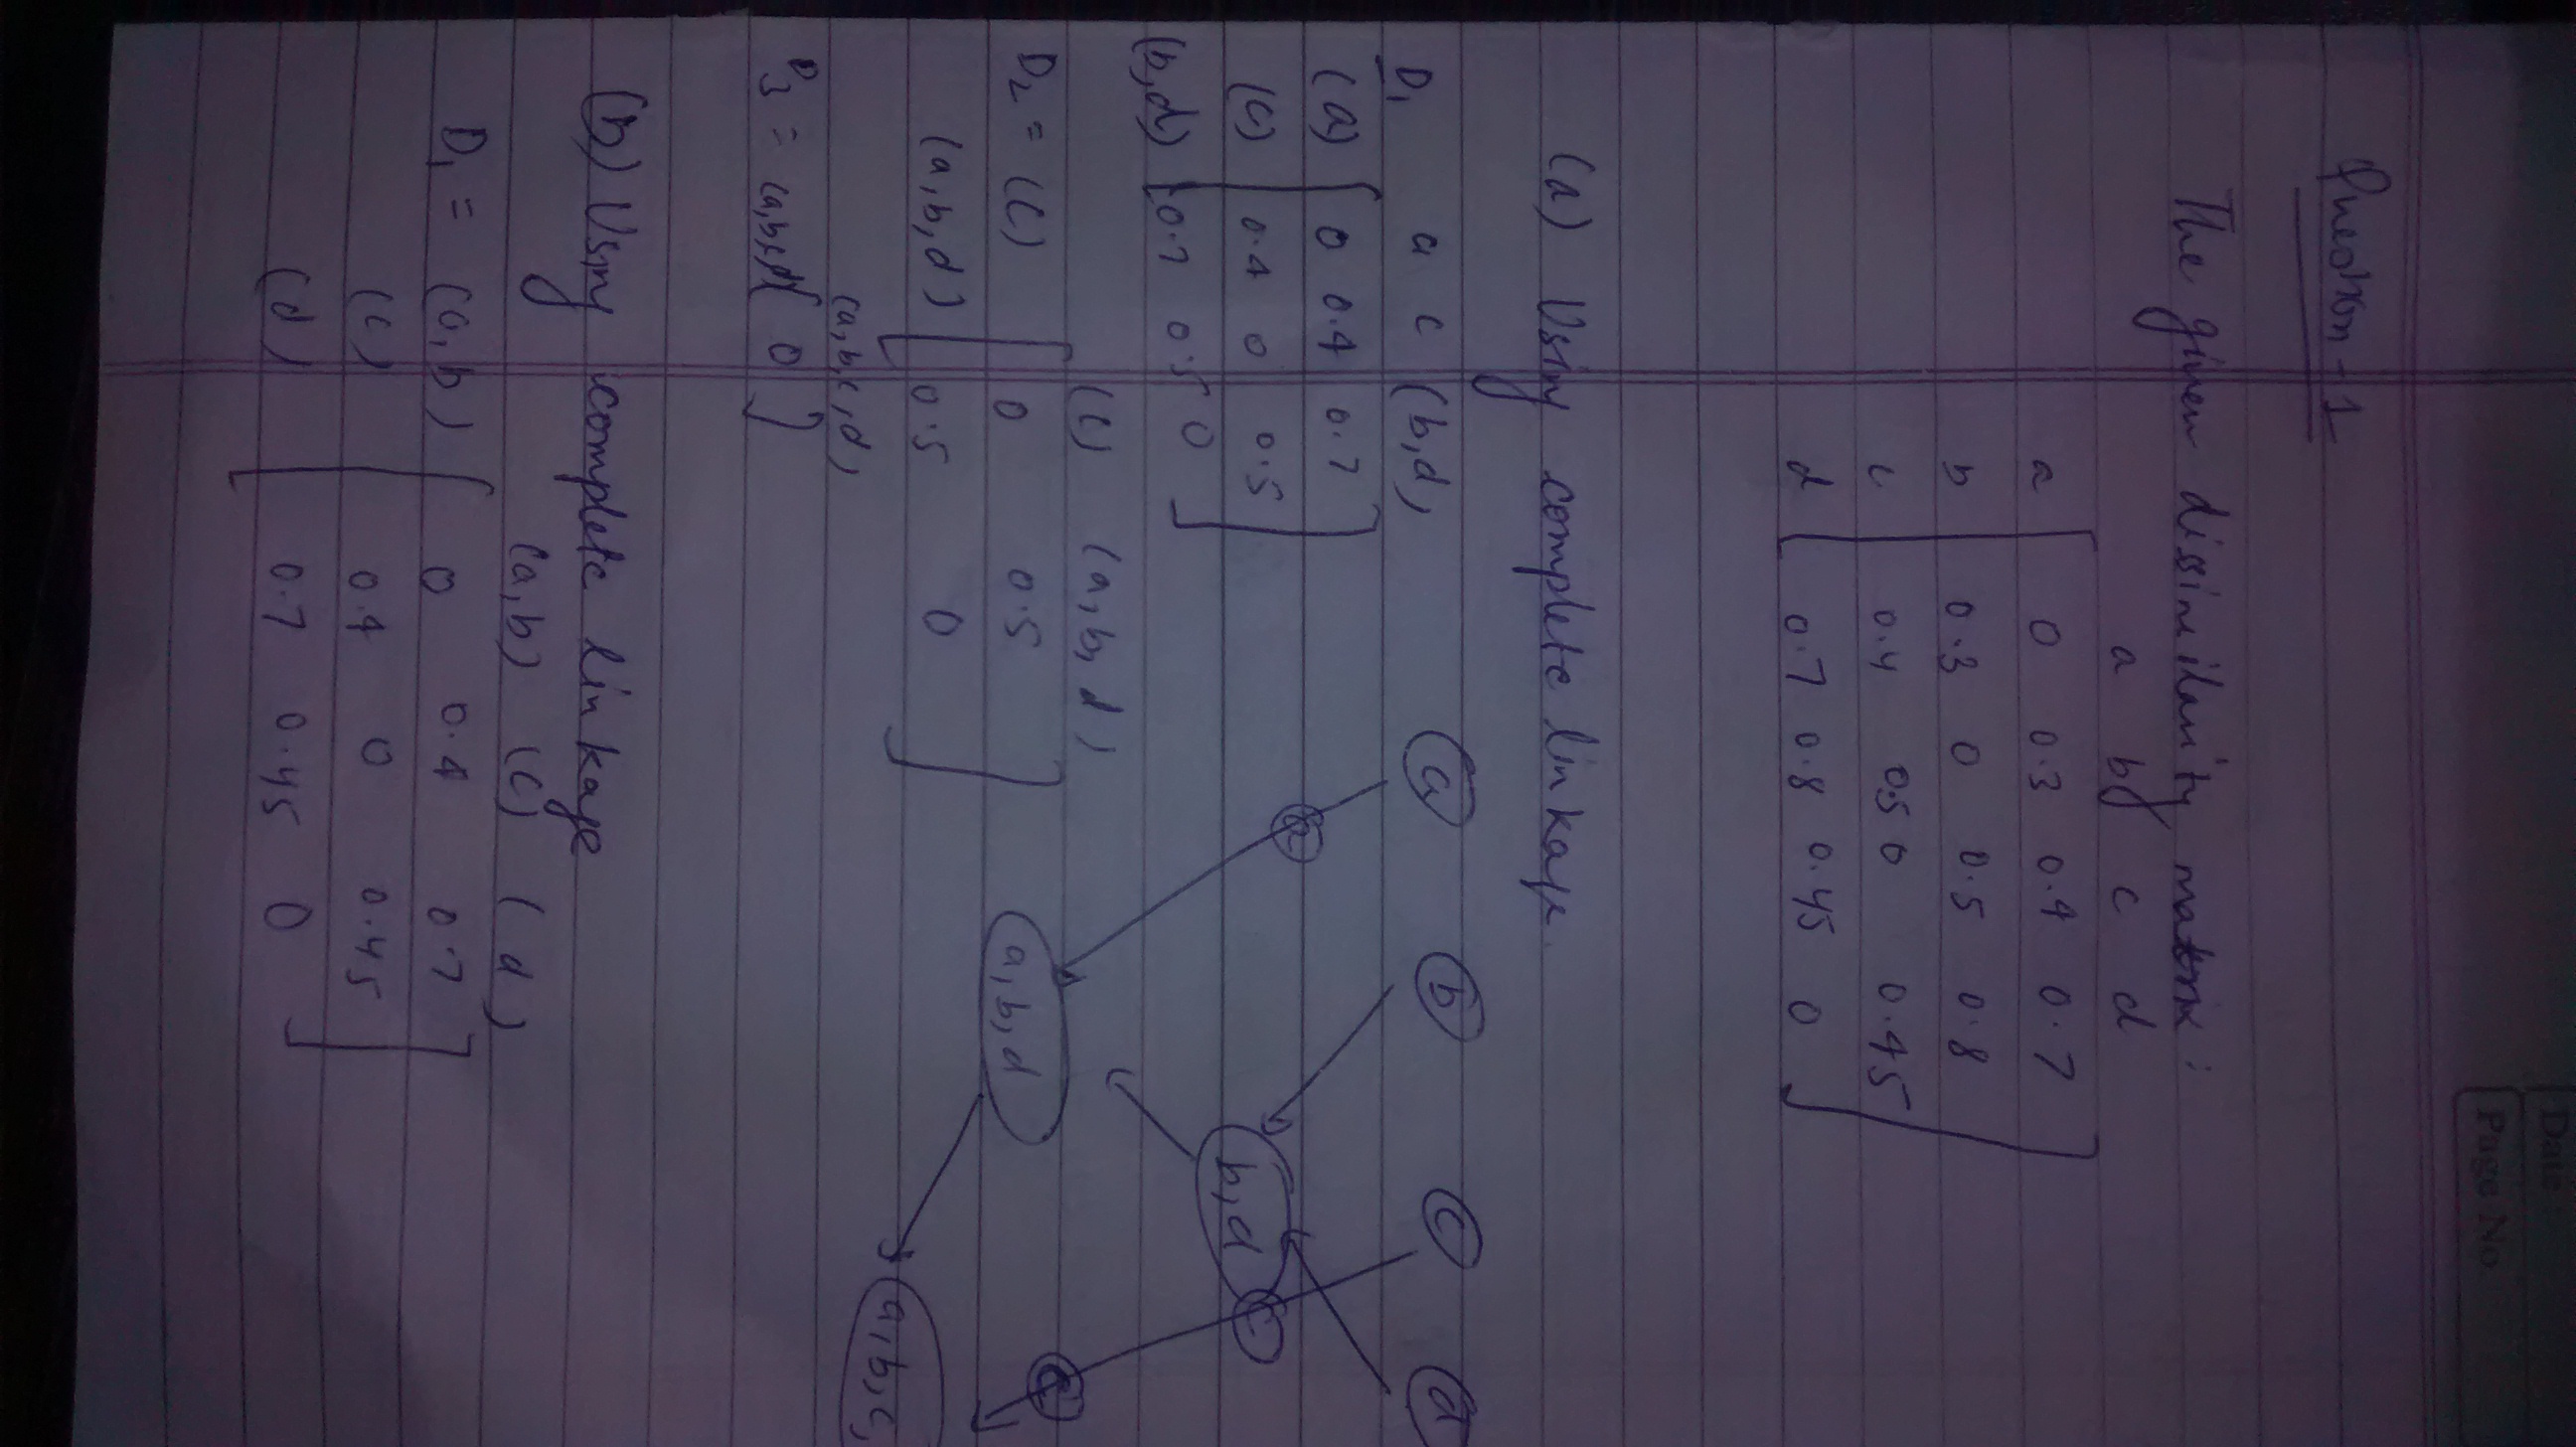 Date :
Page No
Question-1
The given dissimilarity matrix :
a b c d
a 0 0.3 0.4 0.7
b 0.3 0 0.5 0.8
c 0.4 0.5 0 0.45
d 0.7 0.8 0.45 0
(a) Using complete linkage.
D1 a c (b,d)
(a) 0 0.4 0.7
(c) 0.4 0 0.5
(b,d) 0.7 0.5 0
a b c d
b,d c
a,b,d
a,b,c,
(c) (a,b,d)
D2 = (c) 0 0.5
(a,b,d) 0.5 0
(a,b,c,d)
D3 = (a,b,c,d) [ 0 ]
(b) Using complete linkage
(a,b) (c) (d)
D1 = (a,b) 0 0.4 0.7
(c) 0.4 0 0.45
(d) 0.7 0.45 0